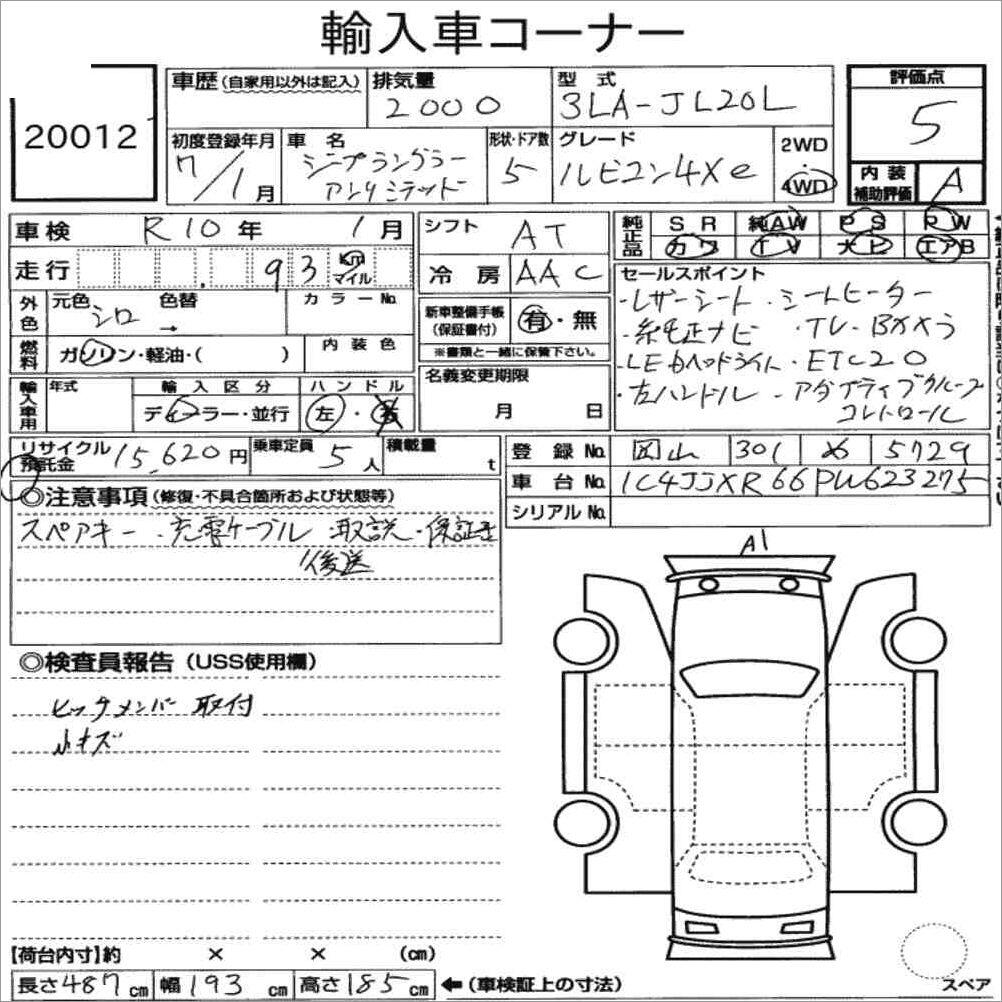 輸入車コーナー
20012
車歴(自家用以外は記入)
排気量 2000
型式 3LA-JL20L
評価点 5
初度登録年月 7/1月
車名 ジープラングラー アンリミテッド
形状・ドア数 5
グレード ルビコン4Xe
2WD・4WD
内装補助評価 A
車検 R10年 1月
シフト AT
純正品 SR 純AW PS PW
カワ TV ナビ エアB
走行 93 km マイル
冷房 AAC
セールスポイント
・レザーシート・シートヒーター
・純正ナビ ・TV・Bカメラ
・LEDヘッドライト・ETC2.0
・左ハンドル・アダプティブクルーズ
コントロール
外色 元色 シロ 色替 → カラーNo.
新車整備手帳(保証書付) 有・無
※書類と一緒に保管下さい。
燃料 ガソリン・軽油・( ) 内装色
名義変更期限 月 日
輸入車用 年式 輸入区分 ディーラー・並行 ハンドル 左・右
リサイクル預託金 15,620円 乗車定員 5人 積載量 t
登録No. 岡山 301 め 5729
車台No. 1C4JJXR66PW623275
シリアルNo.
◎注意事項(修復・不具合箇所および状態等)
スペアキー・充電ケーブル・取説・保証書
後送
◎検査員報告(USS使用欄)
ヒッチメンバー取付
小キズ
A1
【荷台内寸】約 × × (cm)
長さ487cm 幅193cm 高さ185cm ←(車検証上の寸法)
スペア